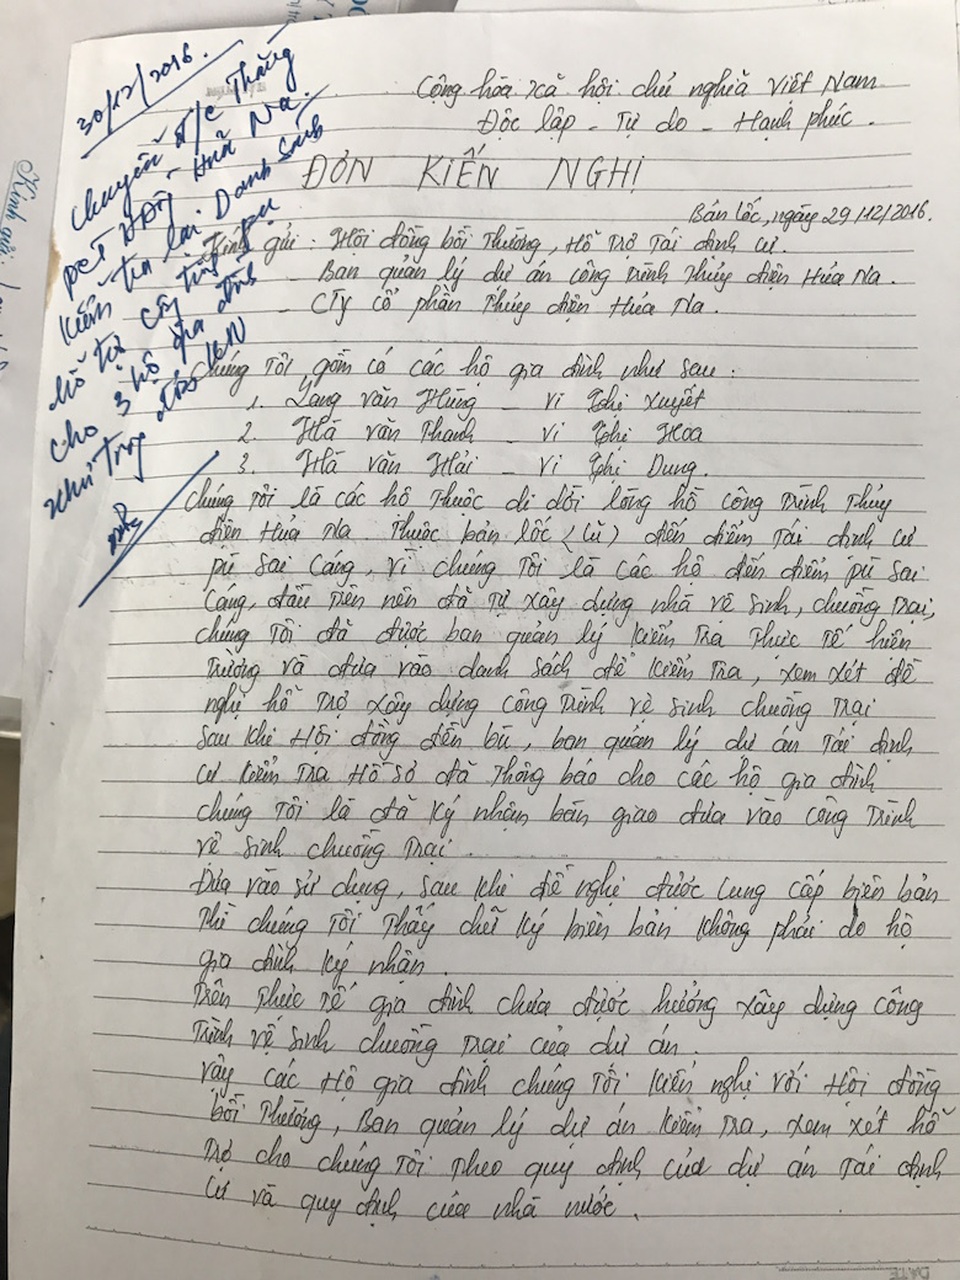 Cộng hòa xã hội chủ nghĩa Việt Nam
Độc lập - Tự do - Hạnh phúc.
ĐƠN KIẾN NGHỊ
Bản Lốc, ngày 29/12/2016.
Kính gửi: Hội đồng bồi thường, Hỗ trợ tái định cư.
- Ban quản lý dự án công trình thủy điện Hủa Na.
- CTy cổ phần thủy điện Hủa Na.
Chúng tôi gồm có các hộ gia đình như sau:
1. Lang văn Hùng - Vi thị Xuyết
2. Hà văn Thanh - Vi thị Hoa
3. Hà văn Hải - Vi thị Dung.
Chúng tôi là các hộ thuộc di dời lòng hồ công trình thủy
điện Hủa Na. Thuộc bản lốc (cũ) đến điểm tái định cư
pù sai cáng, vì chúng tôi là các hộ đến điểm pù sai
cáng, đầu tiên nên đã tự xây dựng nhà vệ sinh, chuồng trại,
chúng tôi đã được ban quản lý kiểm tra thực tế hiện
trường và đưa vào danh sách để kiểm tra, xem xét đề
nghị hỗ trợ xây dựng công trình vệ sinh chuồng trại
sau khi Hội đồng đền bù, ban quản lý dự án tái định
cư kiểm tra Hồ sơ đã thông báo cho các hộ gia đình
chúng tôi là đã ký nhận bàn giao đưa vào công trình
vệ sinh chuồng trại.
Đưa vào sử dụng, sau khi đề nghị được cung cấp biên bản
thì chúng tôi thấy chữ ký biên bản không phải do hộ
gia đình ký nhận.
Trên thực tế gia đình chưa được hưởng xây dựng công
trình vệ sinh chuồng trại của dự án.
Vậy các Hộ gia đình chúng tôi kiến nghị với Hội đồng
bồi thường, Ban quản lý dự án kiểm tra, xem xét hỗ
trợ cho chúng tôi theo quy định của dự án tái định
cư và quy định của nhà nước.
30/12/2016.
Chuyển đ/c Thăng
Hủa Na.
kiểm tra lại Danh sách
hỗ trợ
cho 3 hộ gia đình
như trong đơn KN
Kính gửi:
DATE